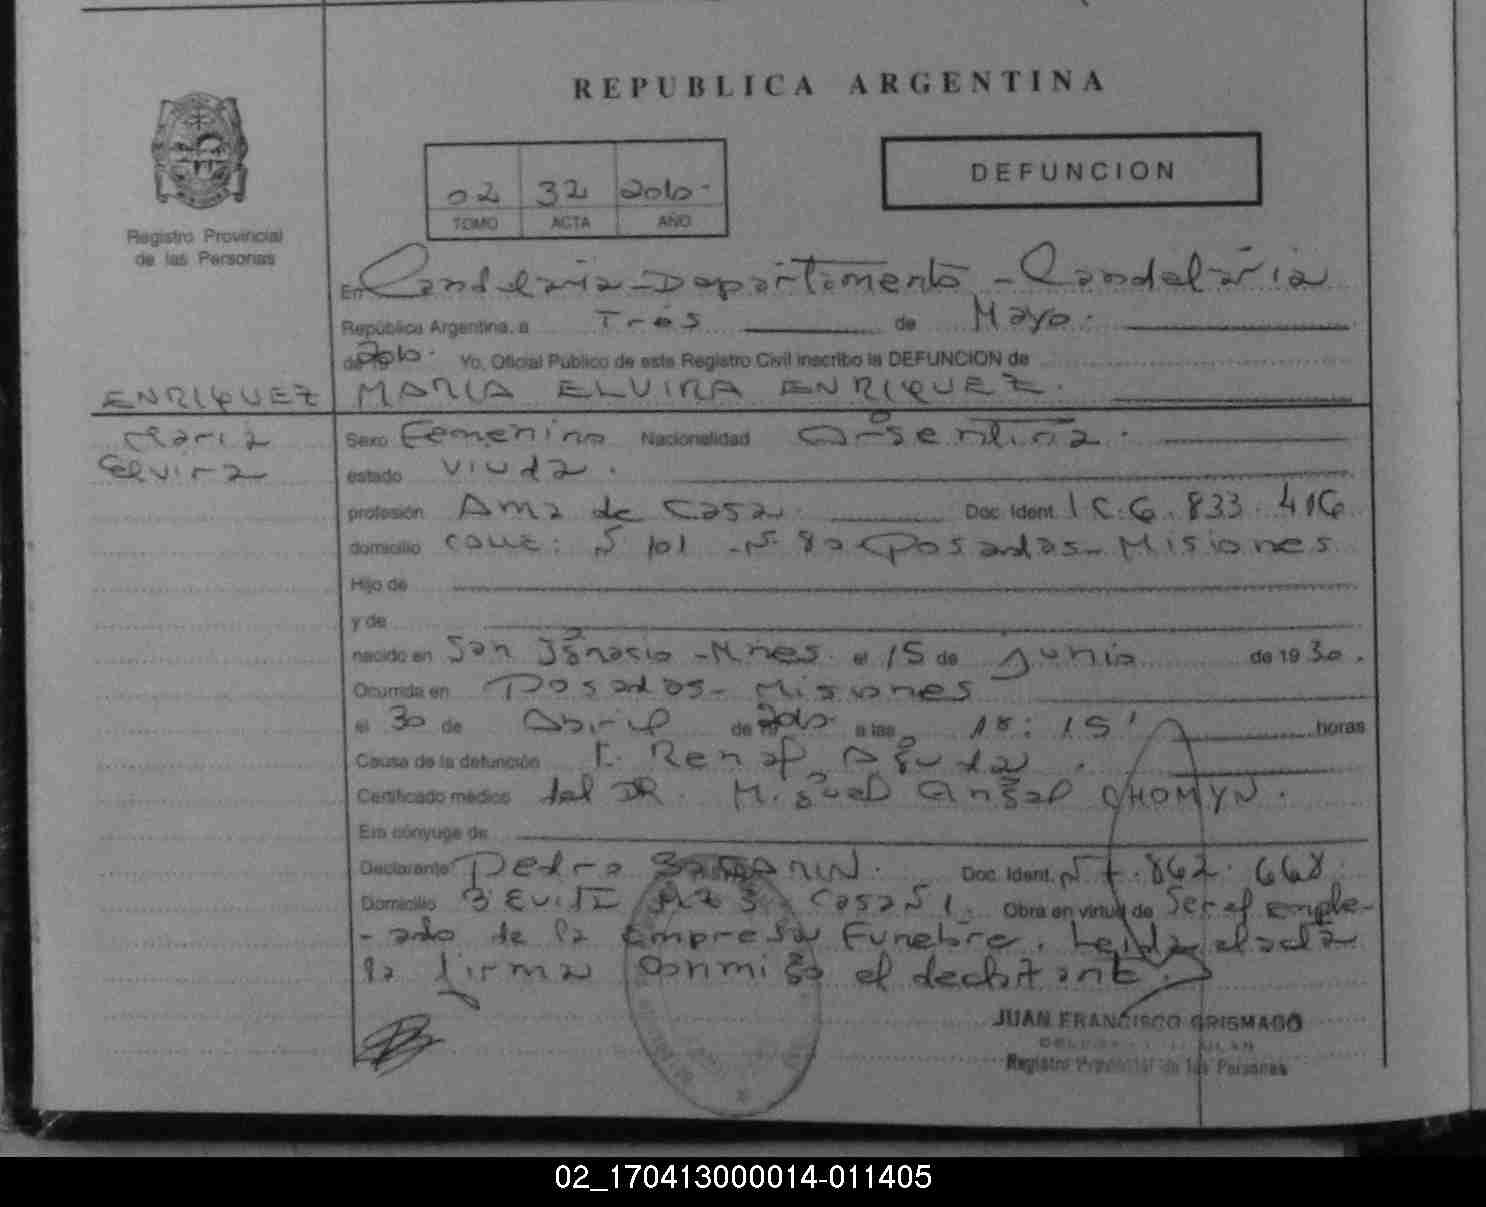 REPUBLICA ARGENTINA
02 32 2010.
TOMO ACTA AÑO
DEFUNCION
Registro Provincial
de las Personas
En Candelaria - Departamento - Candelaria
República Argentina, a Tres de Mayo.
de 2010. Yo, Oficial Público de este Registro Civil inscribo la DEFUNCION de
ENRIQUEZ MARIA ELVIRA ENRIQUEZ.
Maria
Elvira
Sexo Femenino Nacionalidad Argentina.
estado Viuda.
profesión Ama de Casa. Doc. Ident. L C. 6.833.416
domicilio Calle: Nº 101 - Nº 80 Posadas - Misiones
Hijo de
y de
nacido en San Ignacio - Mnes. el 15 de Junio de 1930.
Ocurrida en Posadas - Misiones
el 30 de Abril de 2010 a las 18:15' horas
Causa de la defunción I. Renal Aguda.
Certificado médico del DR. Miguel Angel CHOMYN.
Era cónyuge de
Declarante Pedro Doc. Ident. Nº 7.862.668
Domicilio Bº Evita Mz 3 Casa Nº 1. Obra en virtud de Ser el emple-
-ado de la Empresa Funebre. Leida el acta
la firma conmigo el declarante.
JUAN FRANCISCO GRISMADO
Registro Provincial de las Personas
02_170413000014-011405